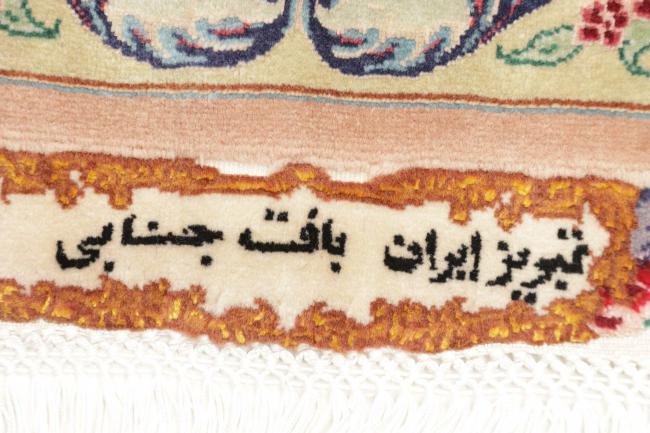 تبریز ایران بافت جنابی